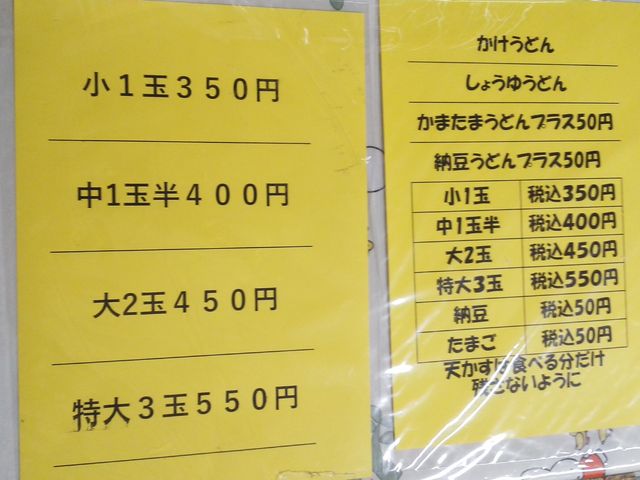 小１玉３５０円
中1玉半４００円
大2玉４５０円
特大３玉５５０円
かけうどん
しょうゆうどん
かまたまうどんプラス50円
納豆うどんプラス50円
小1玉 税込350円
中1玉半 税込400円
大2玉 税込450円
特大3玉 税込550円
納豆 税込50円
たまご 税込50円
天かすは食べる分だけ
残さないように